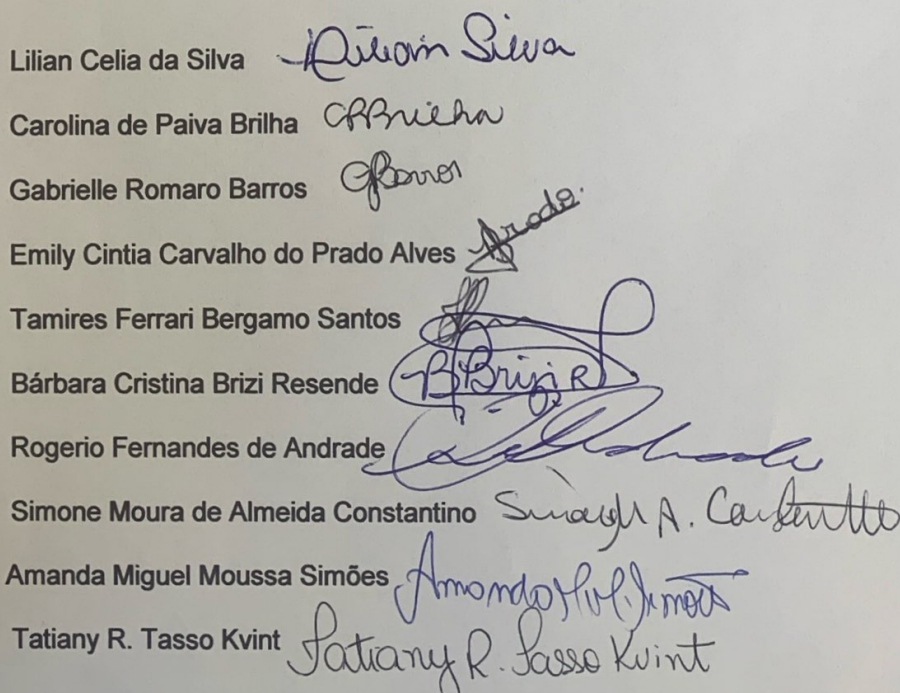 Lilian Celia da Silva Lilian Silva
Carolina de Paiva Brilha CPBrilha
Gabrielle Romaro Barros GBarros
Emily Cintia Carvalho do Prado Alves Prado.
Tamires Ferrari Bergamo Santos
Bárbara Cristina Brizi Resende B Brizi R
Rogerio Fernandes de Andrade Andrade
Simone Moura de Almeida Constantino A. Constantino
Amanda Miguel Moussa Simões Amanda M. M. Simões
Tatiany R. Tasso Kvint Tatiany R. Tasso Kvint